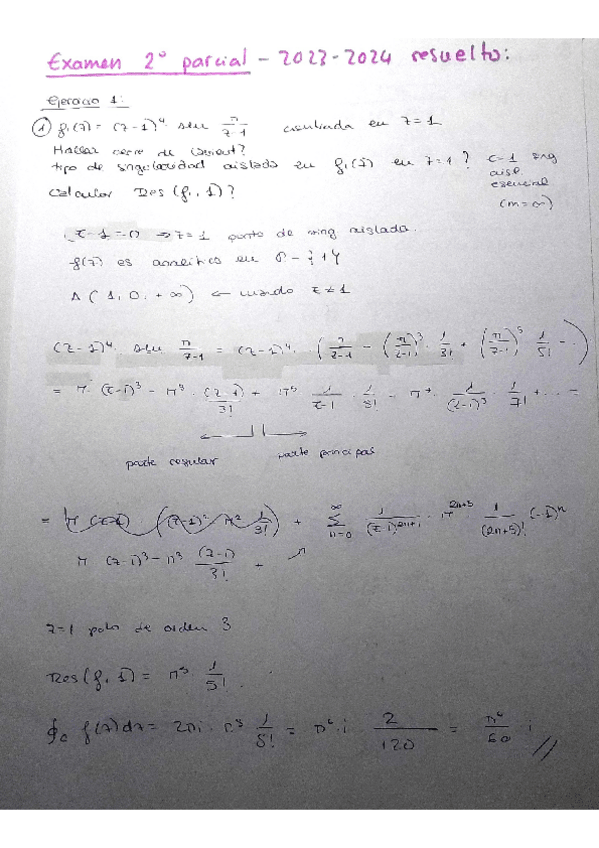 Examen 2º parcial - 2023-2024 resuelto:
Ejercicio 1:
① f₁(z) = (z-1)⁴ · sen π/(z-1) centrada en z=1
Hallar serie de Laurent?
tipo de singularidad aislada en f₁(z) en z=1? z=1 sing aisl. esencial (m=∞)
Calcular Res(f₁, 1)?
z-1=0 → z=1 punto de sing aislada.
f(z) es analítica en ℂ - {1}
A(1, 0, +∞) ← cuando z≠1
(z-1)⁴ · sen π/(z-1) = (z-1)⁴ · (π/(z-1) - (π/(z-1))³ · 1/3! + (π/(z-1))⁵ 1/5! - ...)
= π · (z-1)³ - π³ · (z-1)/3! + π⁵ 1/(z-1) · 1/5! - π⁷ · 1/(z-1)³ · 1/7! + ... =
parte regular parte principal
= π (z-1) ((z-1)² π² 1/3!) + ∑_{n=0}^{∞} 1/(z-1)^{2n+1} · π^{2n+5} 1/(2n+5)! (-1)ⁿ
π (z-1)³ - π³ (z-1)/3! +
z=1 polo de orden 3
Res(f, 1) = π⁵ 1/5!
∮c f(z)dz = 2πi · π⁵ 1/5! = π⁶ · i 2/120 = π⁶/60 i //